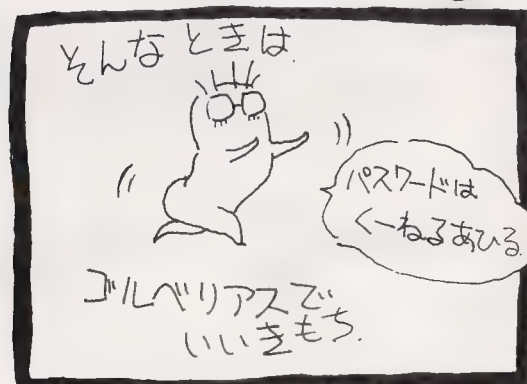 そんなときは
パスワードは
くーねるあひる
ゴルベリアスで
いいきもち.